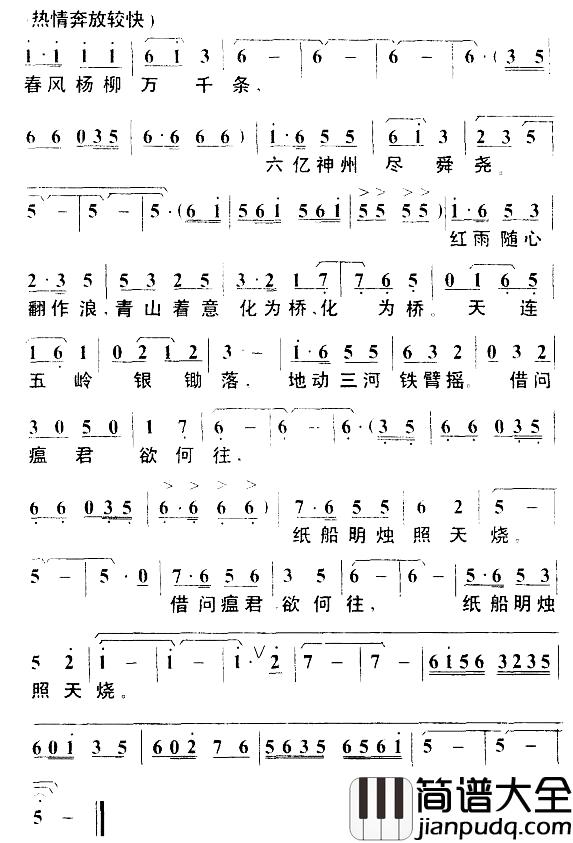 (热情奔放较快)
i·i i i | 6 i 3 | 6 - | 6 - | 6 - | 6·(3 5
春风杨柳万 千条,
6 6 0 3 5 | 6·6 6 6) | i·6 5 5 | 6 i 3 | 2 3 5
六亿神州 尽 舜尧。
5 - | 5 - | 5·(6 i | 5 6 i 5 6 i | 5 5 5 5) | i·6 5 3
红雨随心
2·3 5 | 5 3 2 5 | 3·2 1 7 | 7 6 5 | 0 1 6 5
翻作浪,青山着意 化为桥,化 为桥。 天连
1 6 1 | 0 2 1 2 | 3 - | 1·6 5 5 | 6 3 2 | 0 3 2
五 岭 银 锄落, 地动三河 铁臂摇。 借问
3 0 5 0 | 1 7 | 6 - | 6 - | 6·(3 5 | 6 6 0 3 5
瘟君 欲何往,
6 6 0 3 5 | 6·6 6 6) | 7·6 5 5 | 6 2 | 5 -
纸船明烛 照天烧。
5 - | 5·0 | 7·6 5 6 | 3 5 | 6 - | 6 - | 5·6 5 3
借问瘟君 欲何往, 纸船明烛
5 2 | i - | i - | i·∨2 | 7 - | 7 - | 6 i 5 6 3 2 3 5
照天烧。
6 0 i 3 5 | 6 0 2 7 6 | 5 6 3 5 6 5 6 i | 5 - | 5 -
5 - ‖
简谱大全
jianpudq.com